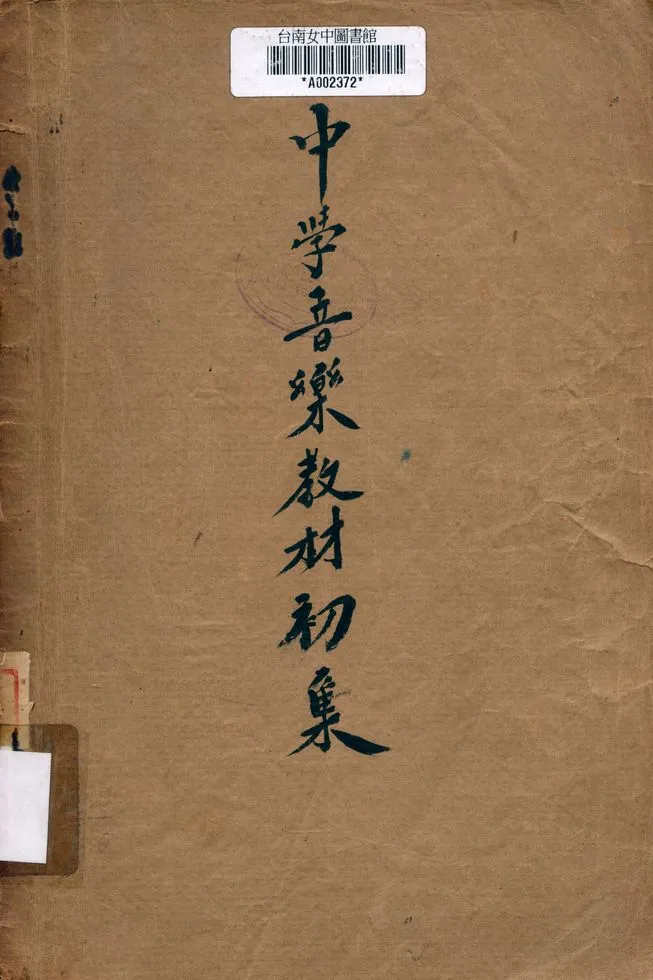 台南女中圖書館
*A002372*
中學音樂教材初集